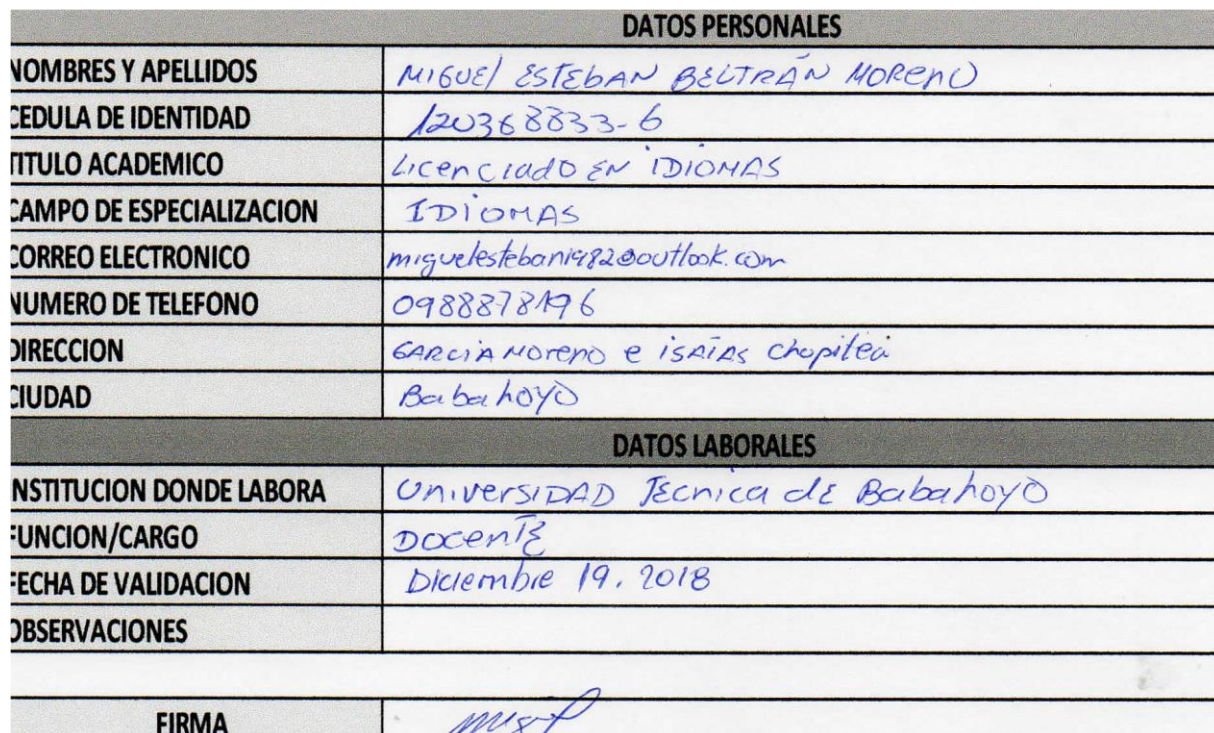 DATOS PERSONALES
NOMBRES Y APELLIDOS MIGUEl ESTEbAN BELTRÁN MORENO
CEDULA DE IDENTIDAD 120368833-6
TITULO ACADEMICO Licenciado EN IDIOMAS
CAMPO DE ESPECIALIZACION IDIOMAS
CORREO ELECTRONICO miguelesteban1982@outlook.com
NUMERO DE TELEFONO 0988878196
DIRECCION GARCIA MORENO e ISAÍAS Chopitea
CIUDAD Babahoyo
DATOS LABORALES
INSTITUCION DONDE LABORA UniversIDAD TÉcnica dE Babahoyo
FUNCION/CARGO DocenTE
FECHA DE VALIDACION Diciembre 19. 2018
OBSERVACIONES
FIRMA